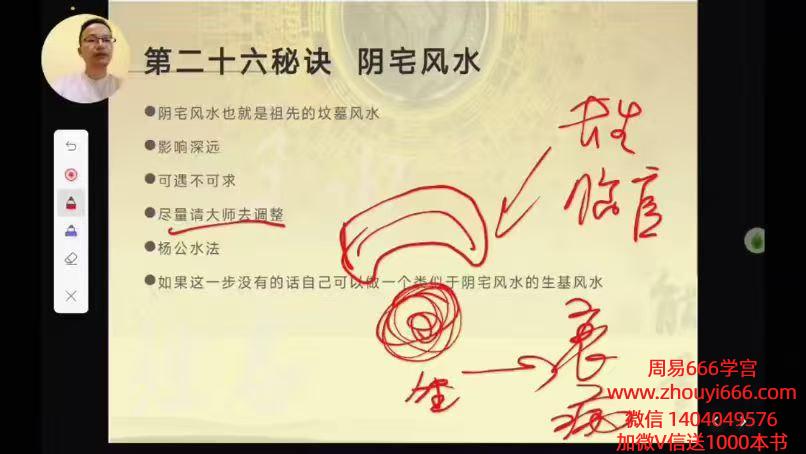 第二十六秘诀 阴宅风水
●阴宅风水也就是祖先的坟墓风水
●影响深远
●可遇不可求
●尽量请大师去调整
●杨公水法
●如果这一步没有的话自己可以做一个类似于阴宅风水的生基风水
长生
临官
衰
病
周易666学宫
www.zhouyi666.com
微信 1404049576
加微V信送1000本书